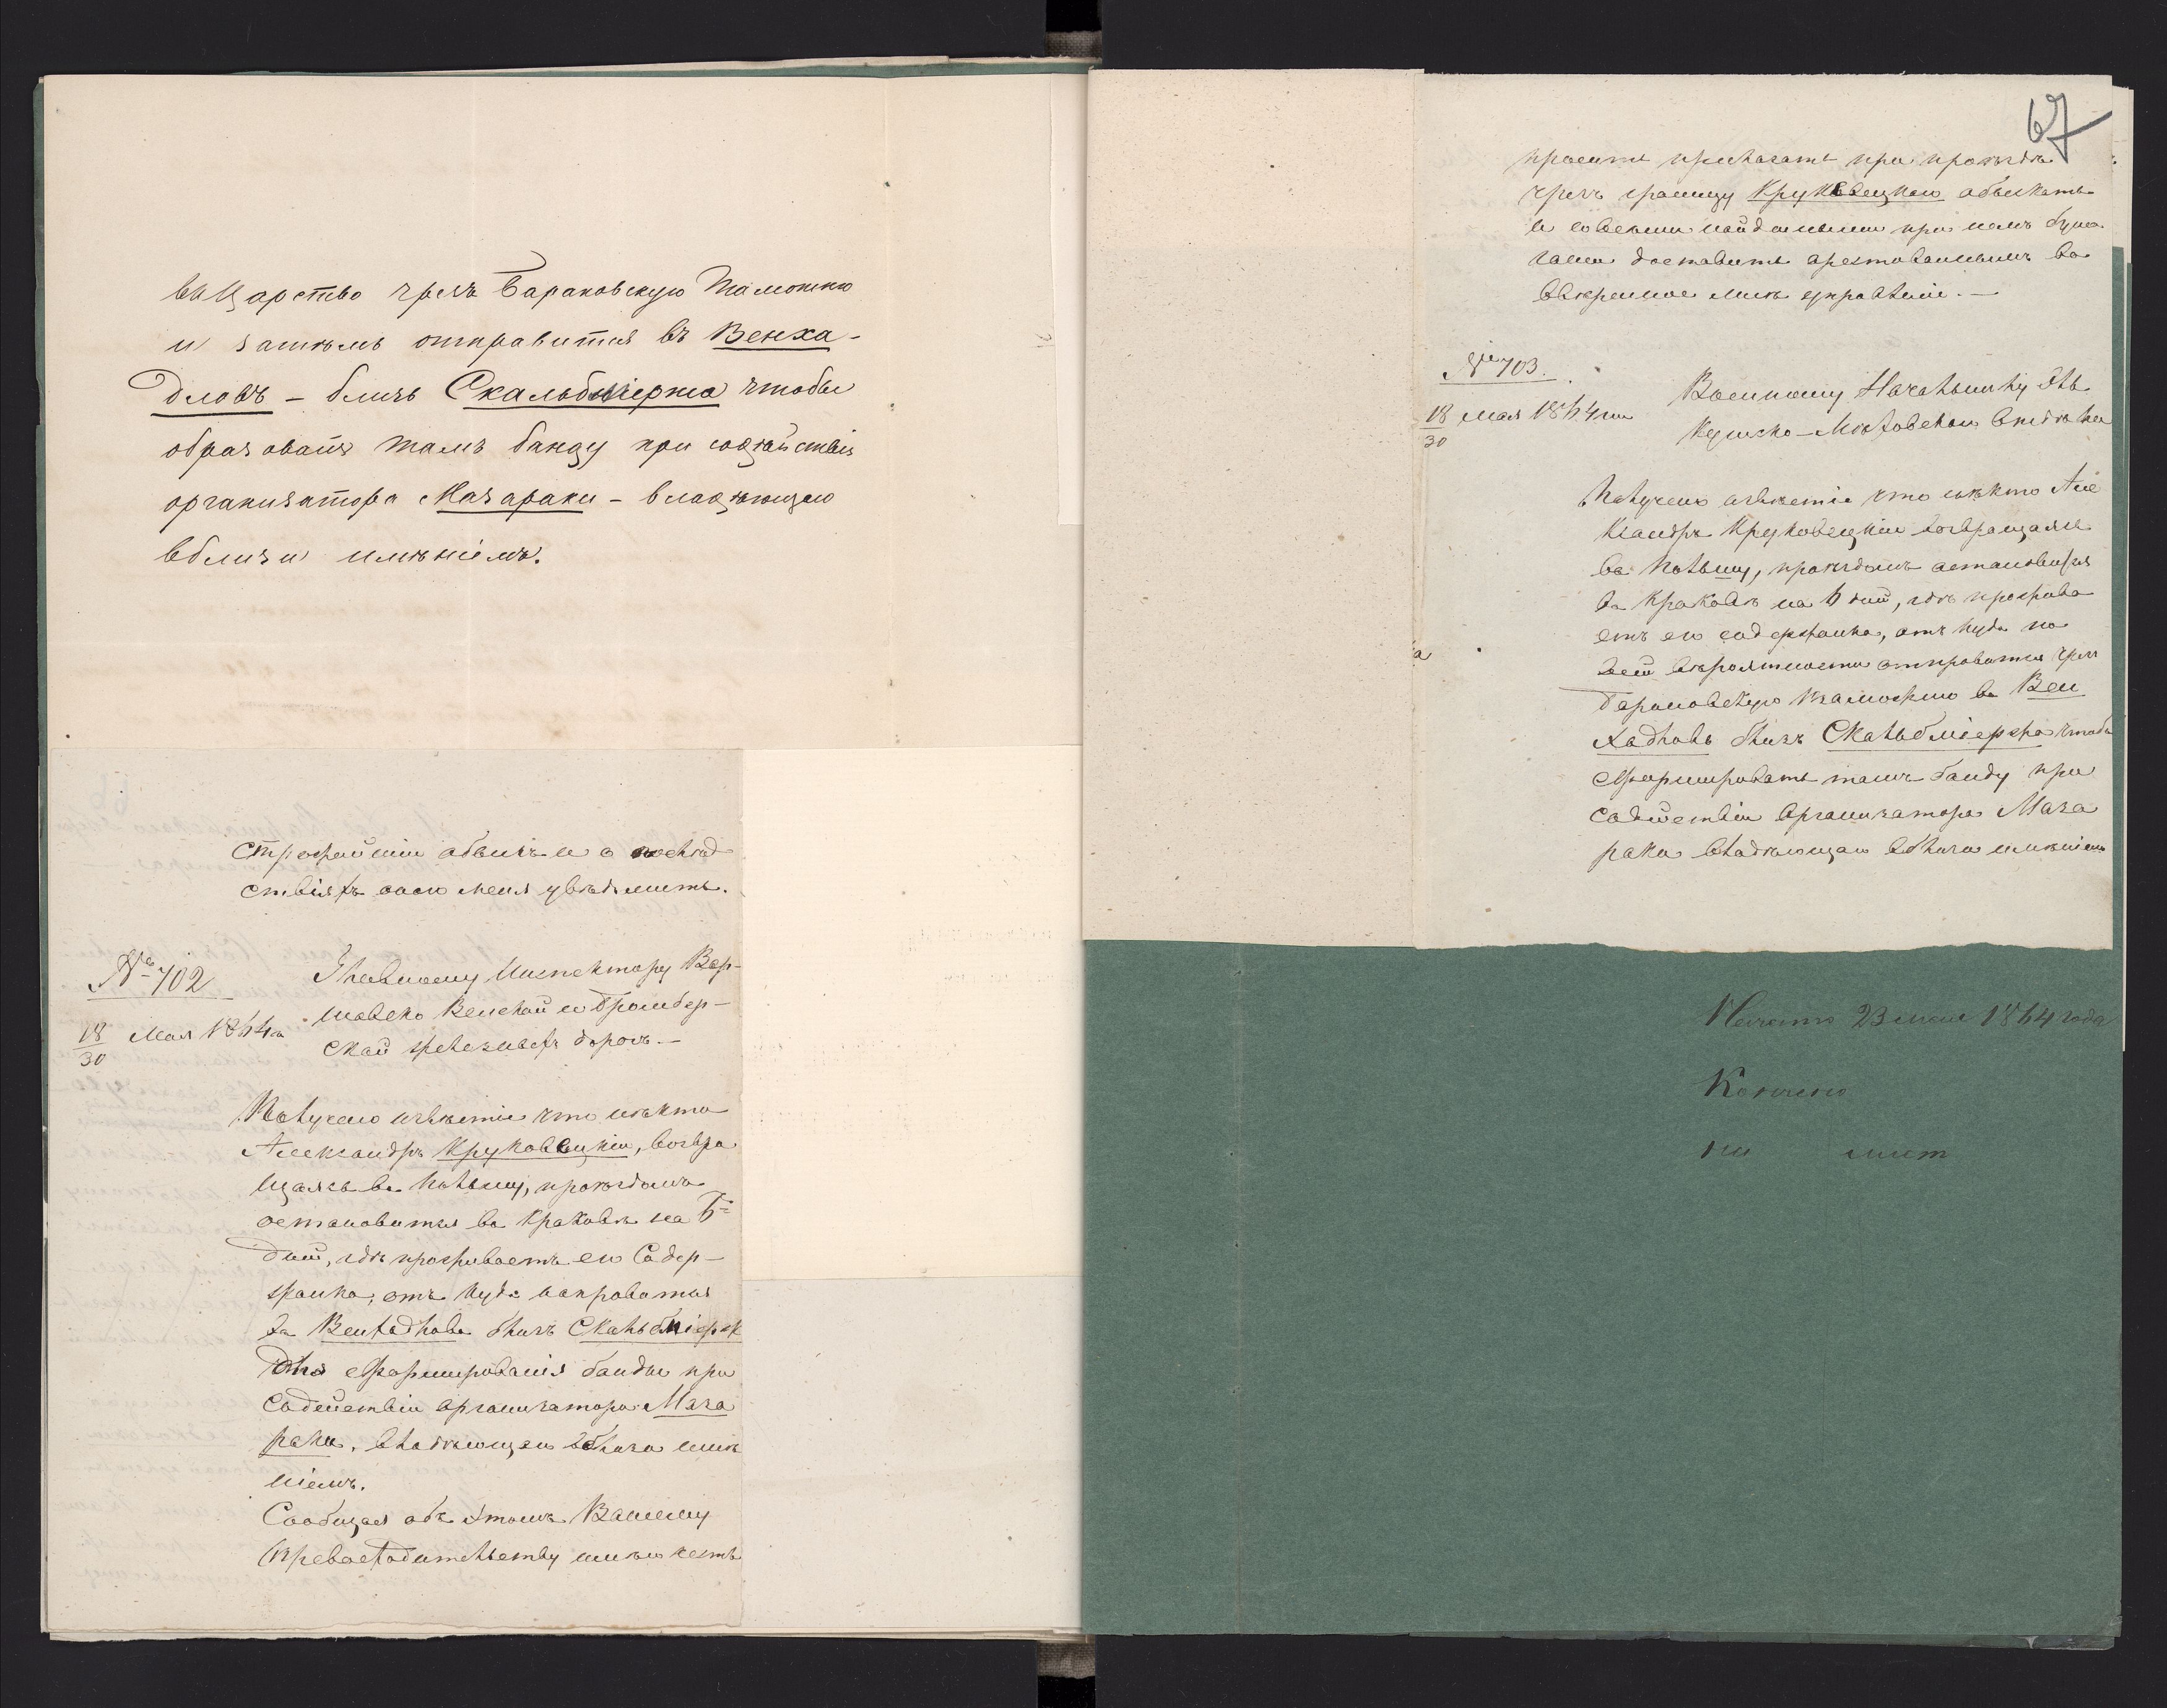 въ Царство чрезъ Барановскую Таможню
и затѣмъ отправится въ Венха-
дловъ - близь Скальбміержа чтобы
образовать тамъ банду при содѣйствіи
организатора Мазараки - владѣющаго
вблизи имѣніемъ.
строжайшій обыскъ и о послѣд
ствіяхъ онаго меня увѣдомить.
№ 702
18/30 Мая 1864 г.
Главному Инспектору Вар-
шавско Венской и Бромбер-
ской желѣзныхъ дорогъ.-
Получено извѣстіе что нѣкто
Александръ Круковецкій, возвра
щаясь въ Польшу, проѣздомъ
остановится въ Краковѣ на 6
дней, гдѣ проживаетъ его Содер-
жанка, отъ куда направится
въ Венхадловъ близь Скальбміержа
для сформированія банды при
Содѣйствіи организатора Маза
раки, владѣющаго вблизи имѣ
ніемъ.
Сообщая объ этомъ Вашему
Превосходительству имѣю честь
67
просить приказать при проѣздѣ
чрезъ границу Круковецкаго обыскать
и со всѣми найденными при немъ бума
гами доставить арестованнымъ во
ввѣренное мнѣ управленіе.-
№ 703.
18/30 Мая 1864 г.
Военному Начальнику Оль
кушско-Мѣховскаго отдѣла
Получено извѣстіе что нѣкто Але
ксандръ Круковецкій возвращаясь
въ Польшу, проѣздомъ остановился
въ Краковѣ на 6 дней, гдѣ прожива
етъ его содержанка, отъ куда по
всей вѣроятности отправится чрезъ
Барановскую Таможню въ Вен
хадловъ близь Скальбміержа чтобы
сформировать тамъ банду при
Содѣйствіи организатора Маза
раки владѣющаго вблизи имѣніемъ
Начато 23 мая 1864 года
Кончено
на лист